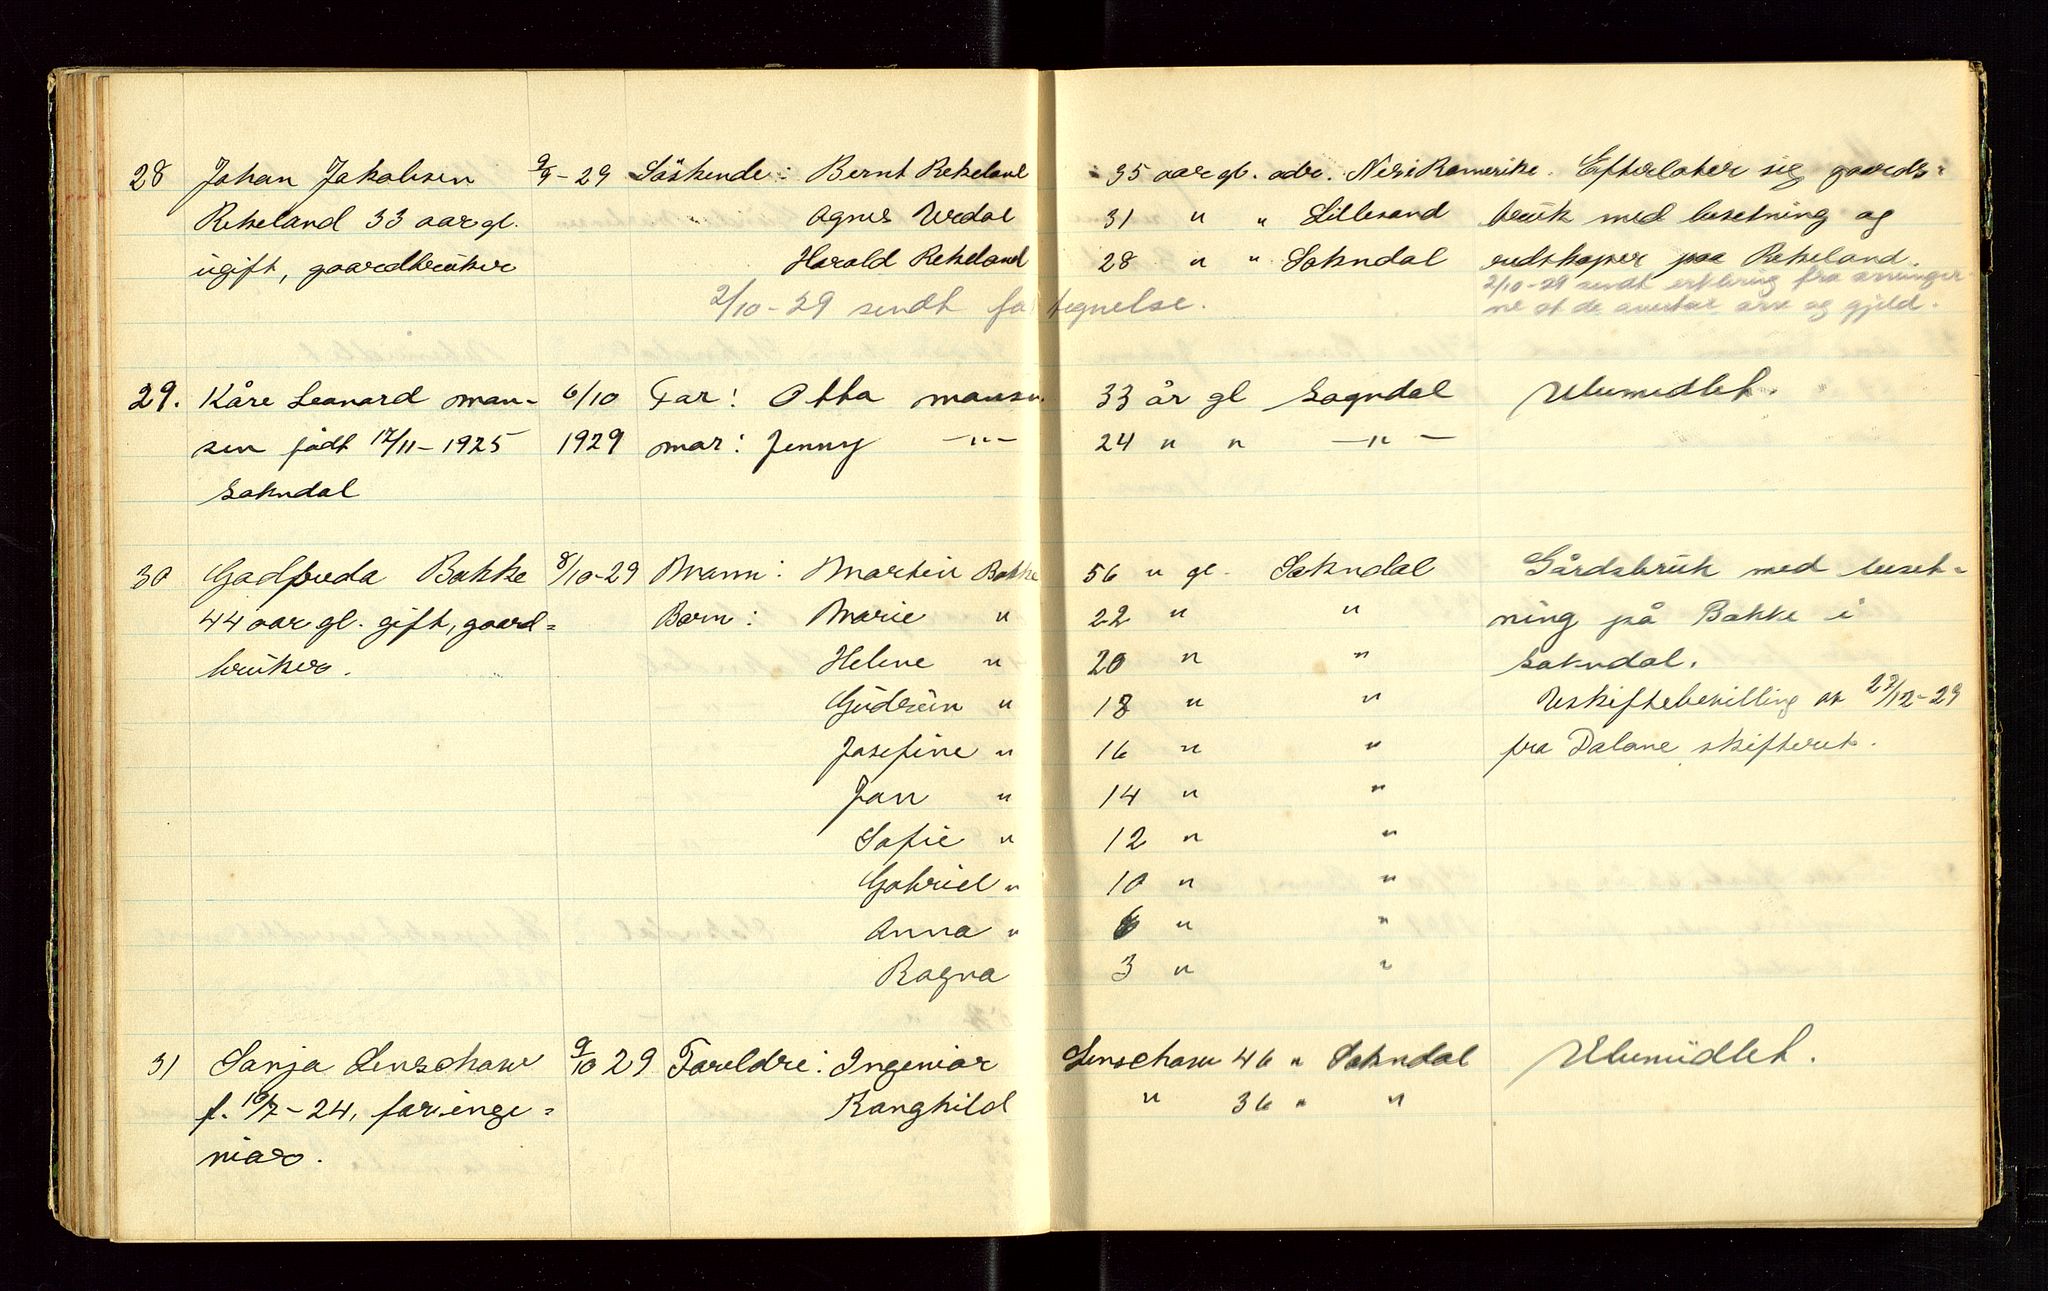 28 Johan Jakobsen 9/9-29 Söskende: Bernt Rekeland 35 aar gl. adr. Nes i Romerike. Efterlater sig gaards-
Rekeland 33 aar gl. Agnes Urdal 31 " " Lillesand bruk med besetning og
ugift, gaardbruker Harald Rekeland 28 " " Sokndal redskaper paa Rekeland.
2/10-29 sendt fortegnelse. 2/10-29 sendt erklæring fra arvinger
ne at de overtar arv og gjeld.
29. Kåre Leonard Mon- 6/10 Far: Otto Monsen 33 år gl Sogndal Ubemidlet.
sen født 12/11-1925 1929 Mor: Jenny -"- 24 " " -"-
Sokndal
30 Gadfreda Bakke 8/10-29 Mann: Martin Bakke 56 " gl. Sokndal Gårdsbruk med beset-
44 aar gl. gift, gaard- Barn: Marie " 22 " " ning på Bakke i
bruker. Helene " 20 " " Sokndal.
Gudrun " 18 " " Uskiftebevilling av 27/12-29
Josefine " 16 " " fra Dalane skifteret.
Jon " 14 " "
Sofie " 12 " "
Gabriel " 10 " "
Anna " 6 " "
Ragna 3 " "
31 Sonja Lenschow 9/10 29 Foreldre: Ingeniør Lenschow 46 " Sokndal Ubemidlet.
f. 10/7-24, far inge- Ranghild " 36 " "
niør.